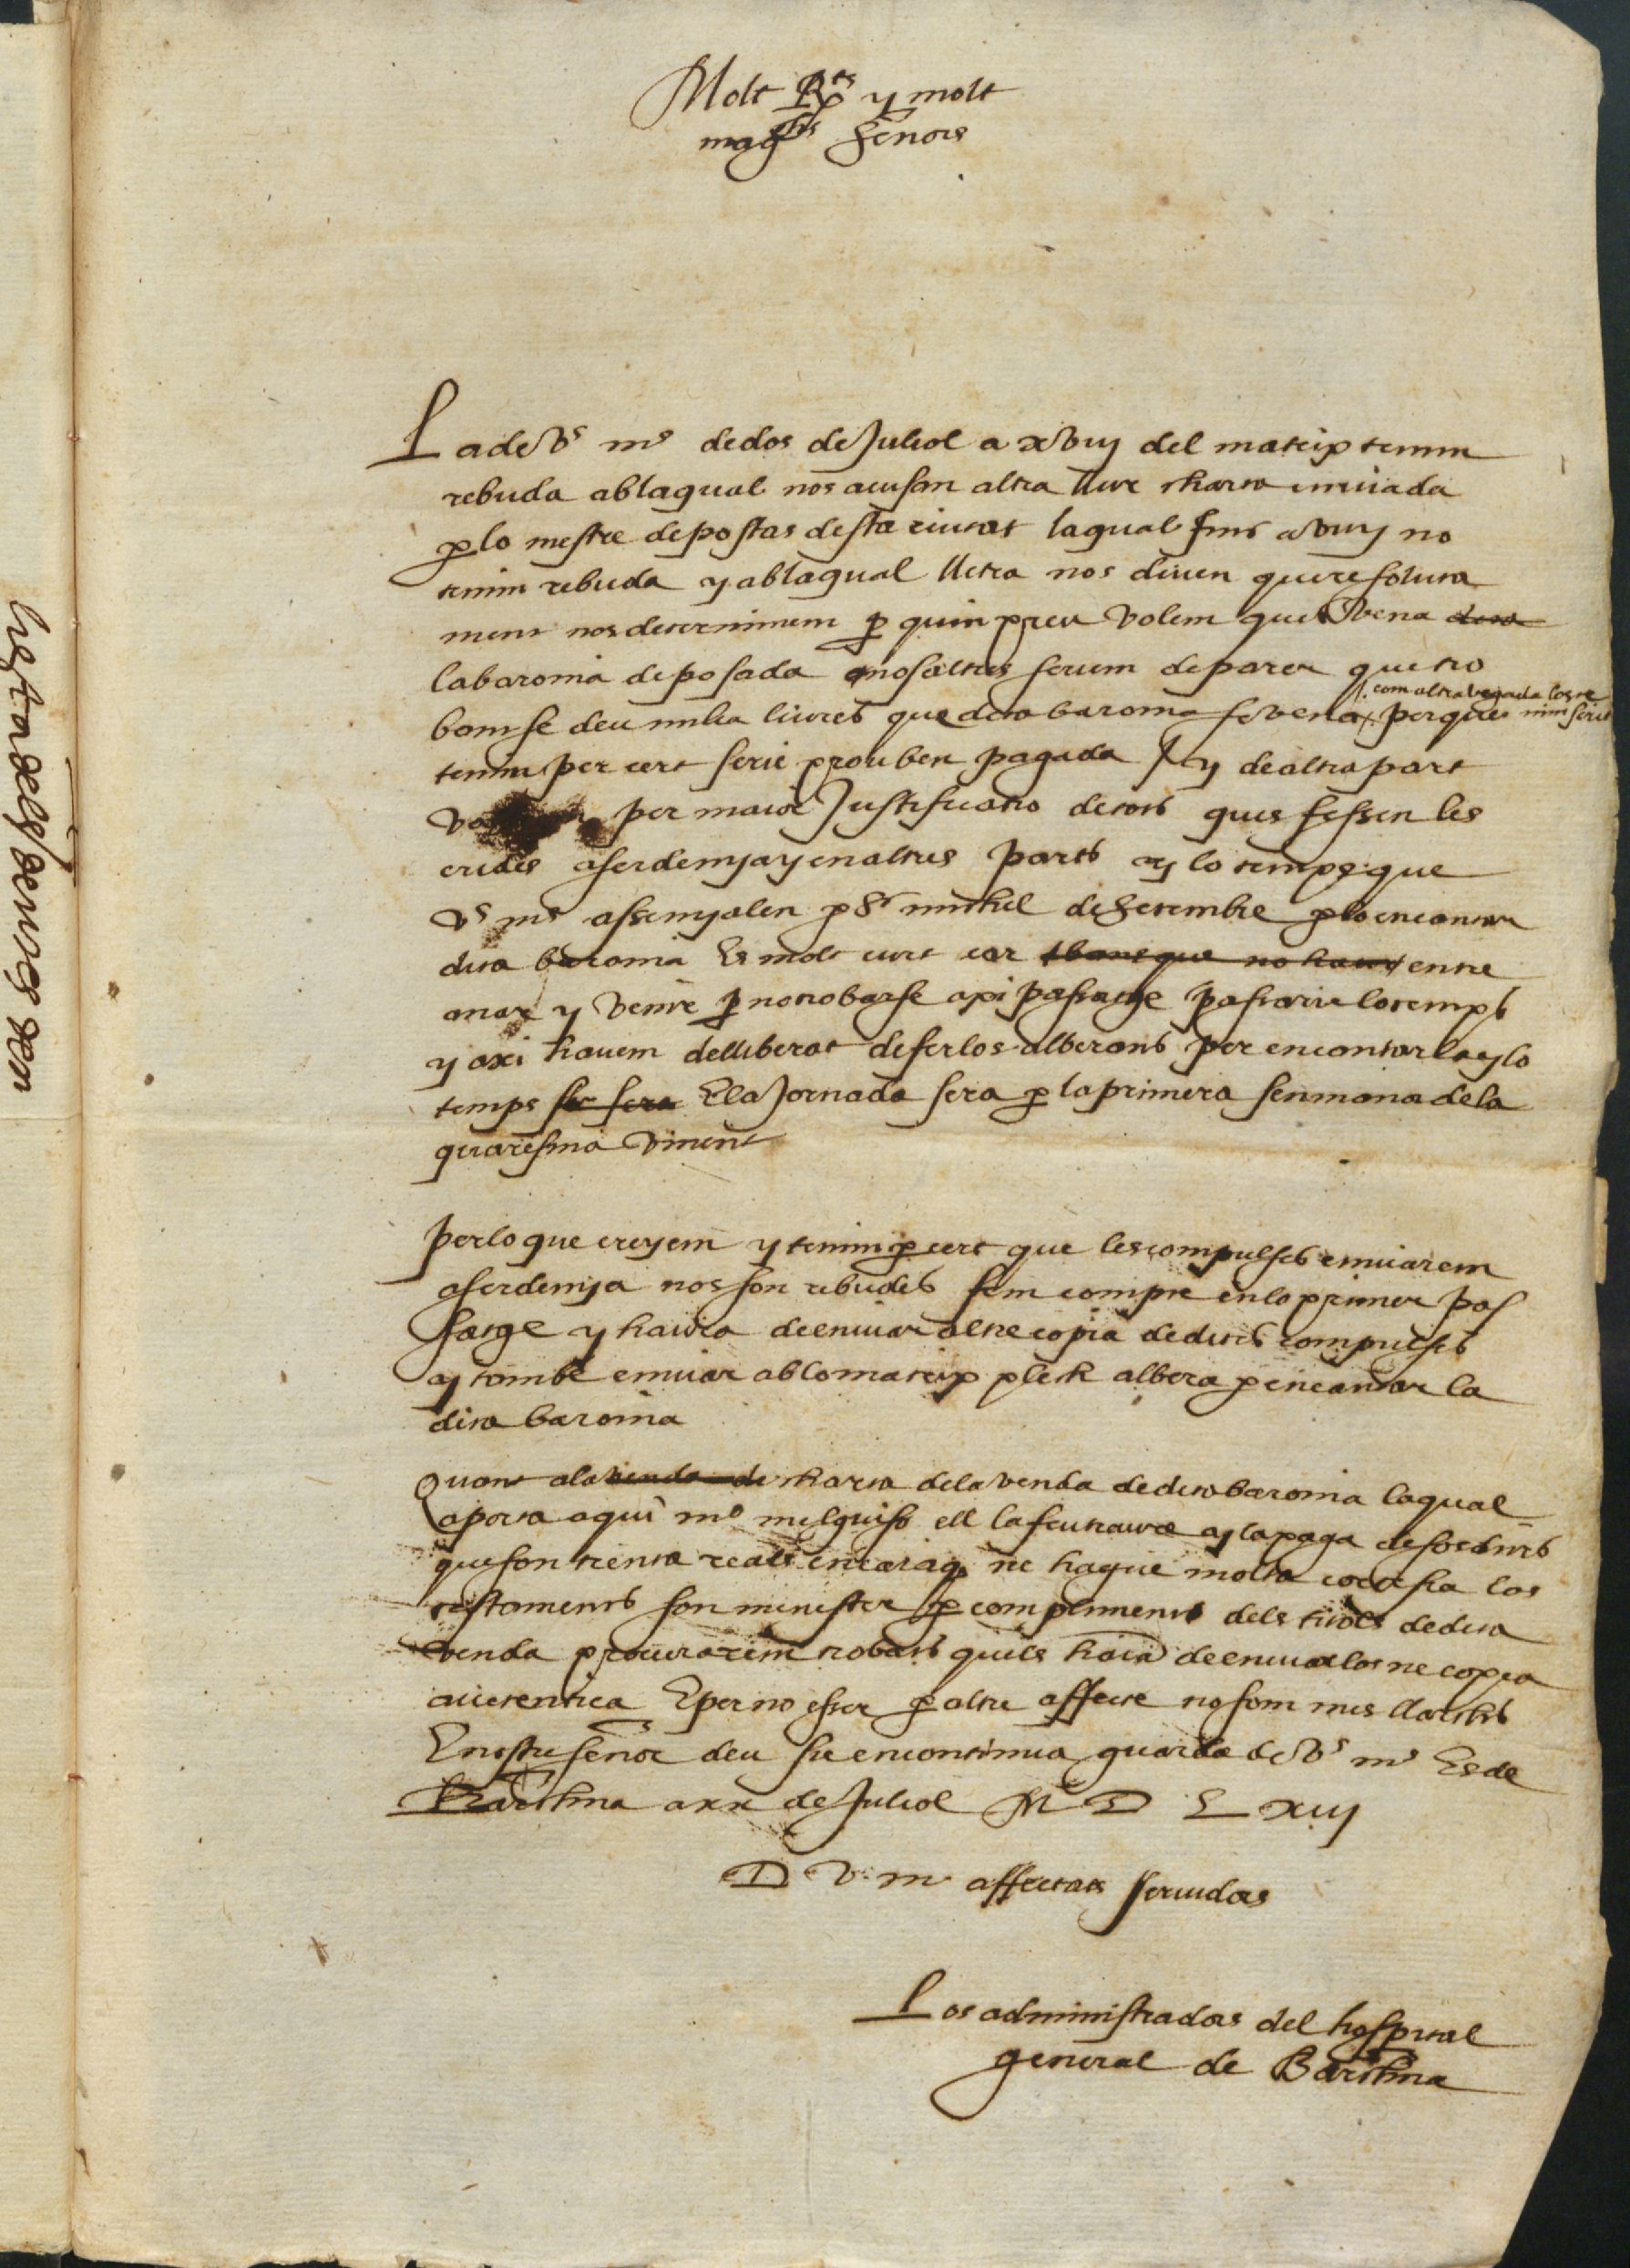 Molt Rts y molt
magchs señors
La de vs ms de dos de Juliol a xviij del mateix tenim
rebuda ab la qual nos acusan altra llur charta enviada
per lo mestre de postas desta ciutat la qual fins a vuy no
tenim rebuda y ab la qual lletra nos diuen que resoluta
ment nos determinem per quin preu volem ques vena dita
la baronia deposada nosaltres seriem de parer que tro
bant se deu milia liures que dita baronia se vena perque
com altra vegada los ne
tenim per cert serie prou ben pagada y de altra part
per maior Justificatio de tots ques fessen les
crides a serdenya y en altres parts y lo temps que
vs ms assenyalen per St michel de Setembre per lo encantar
dita baronia Es molt curt car entre
anar y venir per no trobarse axi passatge passarie lo temps
y axi havem delliberat de fer los albarans per encantarla y lo
temps sie sera E la Jornada sera per la primera semmana de la
quaresma vinent
Per lo que creyem y tenim per cert que les compulses enviarem
a serdenya nos son rebudes fem compte en lo primer pas
satge y haura de enviar altre copia de dites compulses
y tambe enviar ab lo mateix plech albera per encantar la
dita baronia
Quant a la venda de charta de la venda de dita baronia la qual
aporta aqui mo ell la y la paga de sos
que son trenta reals encaraq ne hague molta cortesia los
testaments son menester per compliment dels titols de dita
venda procurarem trobats quils haia de enviarlos ne copia
autentica E per no esser per altre affecte no som mes llarchs
E nostre señor deu sie en continua guarda de vs ms Es de
Barchna a xx de Juliol M D L xiij
D v m affectats servidors
Los administradors del hospital
general de Barchna